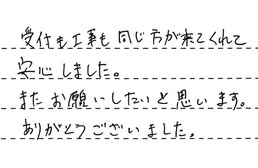 受付も工事も同じ方が来てくれて
安心しました。
またお願いしたいと思います。
ありがとうございました。